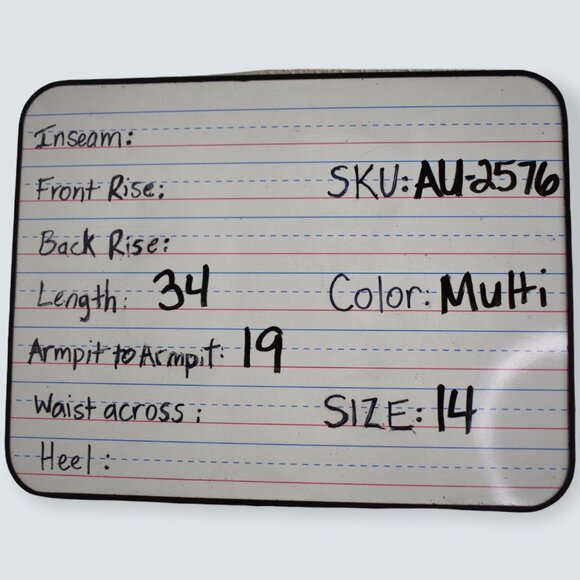 Inseam:
Front Rise:
SKU: AU-2576
Back Rise:
Length: 34
Color: Multi
Armpit to Armpit: 19
Waist across:
SIZE: 14
Heel: